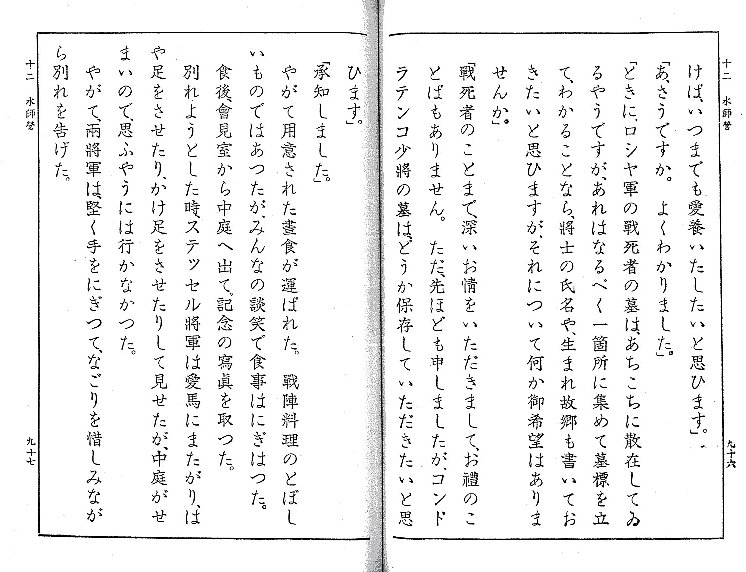 十二 水師營
九十六
けば、いつまでも愛養いたしたいと思ひます。」
「あ、さうですか。よくわかりました。」
「ときに、ロシヤ軍の戰死者の墓は、あちこちに散在してゐ
るやうですが、あれはなるべく一箇所に集めて墓標を立
て、わかることなら、將士の氏名や、生まれ故郷も書いてお
きたいと思ひますが、それについて何か御希望はありま
せんか。」
「戰死者のことまで、深いお情をいただきまして、お禮のこ
とばもありません。ただ、先ほども申しましたが、コンド
ラテンコ少將の墓は、どうか保存していただきたいと思
ひます。」
「承知しました。」
やがて用意された晝食が運ばれた。戰陣料理のとぼし
いものではあつたが、みんなの談笑で食事はにぎはつた。
食後、會見室から中庭へ出て、記念の寫眞を取つた。
別れようとした時、ステッセル將軍は愛馬にまたがり、は
や足をさせたり、かけ足をさせたりして見せたが、中庭がせ
まいので、思ふやうには行かなかつた。
やがて、兩將軍は、堅く手をにぎつて、なごりを惜しみなが
ら別れを告げた。
十二 水師營
九十七